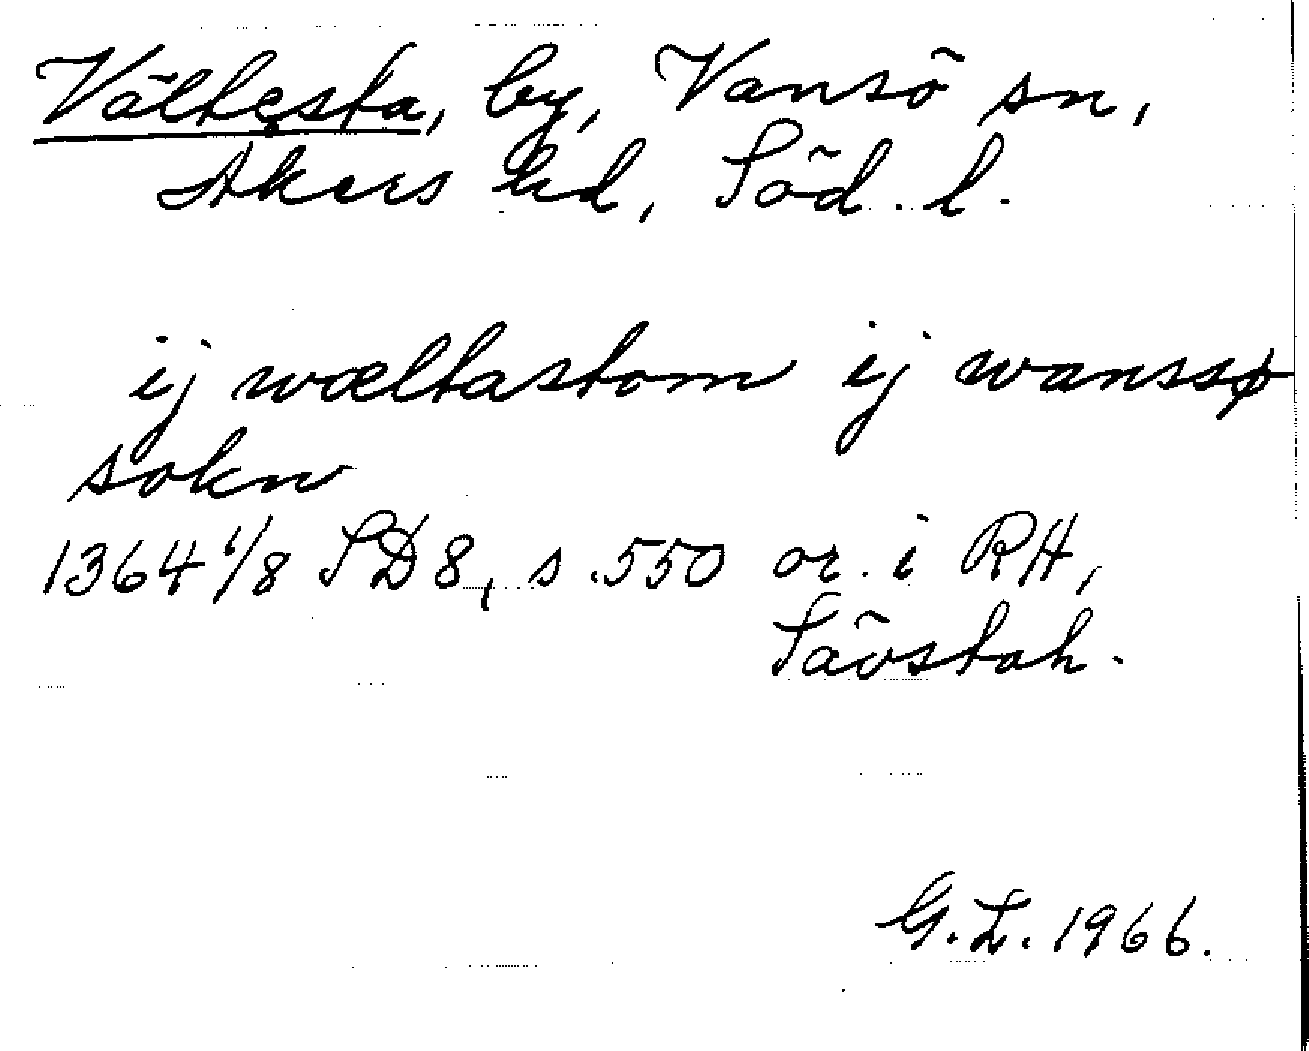 Vältesta, by, Vansö sn,
Åkers hd, Söd. l.
ij wæltastom ij wanssø
sokn
1364 1/8 SD 8, s. 550 or. i RA,
Sävstah.
G.L. 1966.